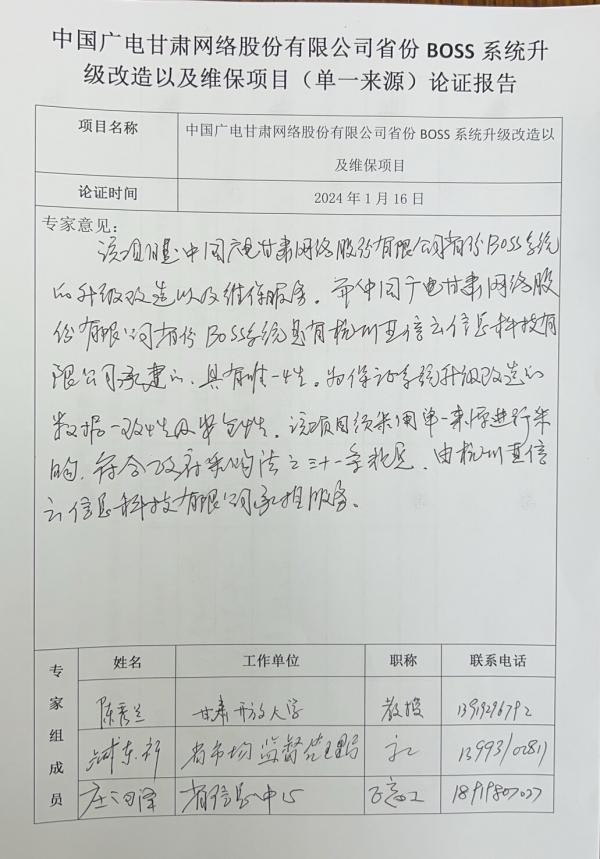 中国广电甘肃网络股份有限公司省份 BOSS 系统升
级改造以及维保项目（单一来源）论证报告
项目名称
中国广电甘肃网络股份有限公司省份 BOSS 系统升级改造以
及维保项目
论证时间
2024 年 1 月 16 日
专家意见：
该项目是中国广电甘肃网络股份有限公司省份BOSS系统
的升级改造以及维保服务。而中国广电甘肃网络股
份有限公司省份BOSS系统是有杭州直信云信息科技有
限公司承建的，具有唯一性。为保证系统升级改造的
数据一致性及安全性，该项目须采用单一来源进行采
购，符合政府采购法之三十一条规定，由杭州直信
云信息科技有限公司承担服务。
专家组成员
姓名 工作单位 职称 联系电话
甘肃开放大学 教授
东 省市场监督管理局
省信息中心